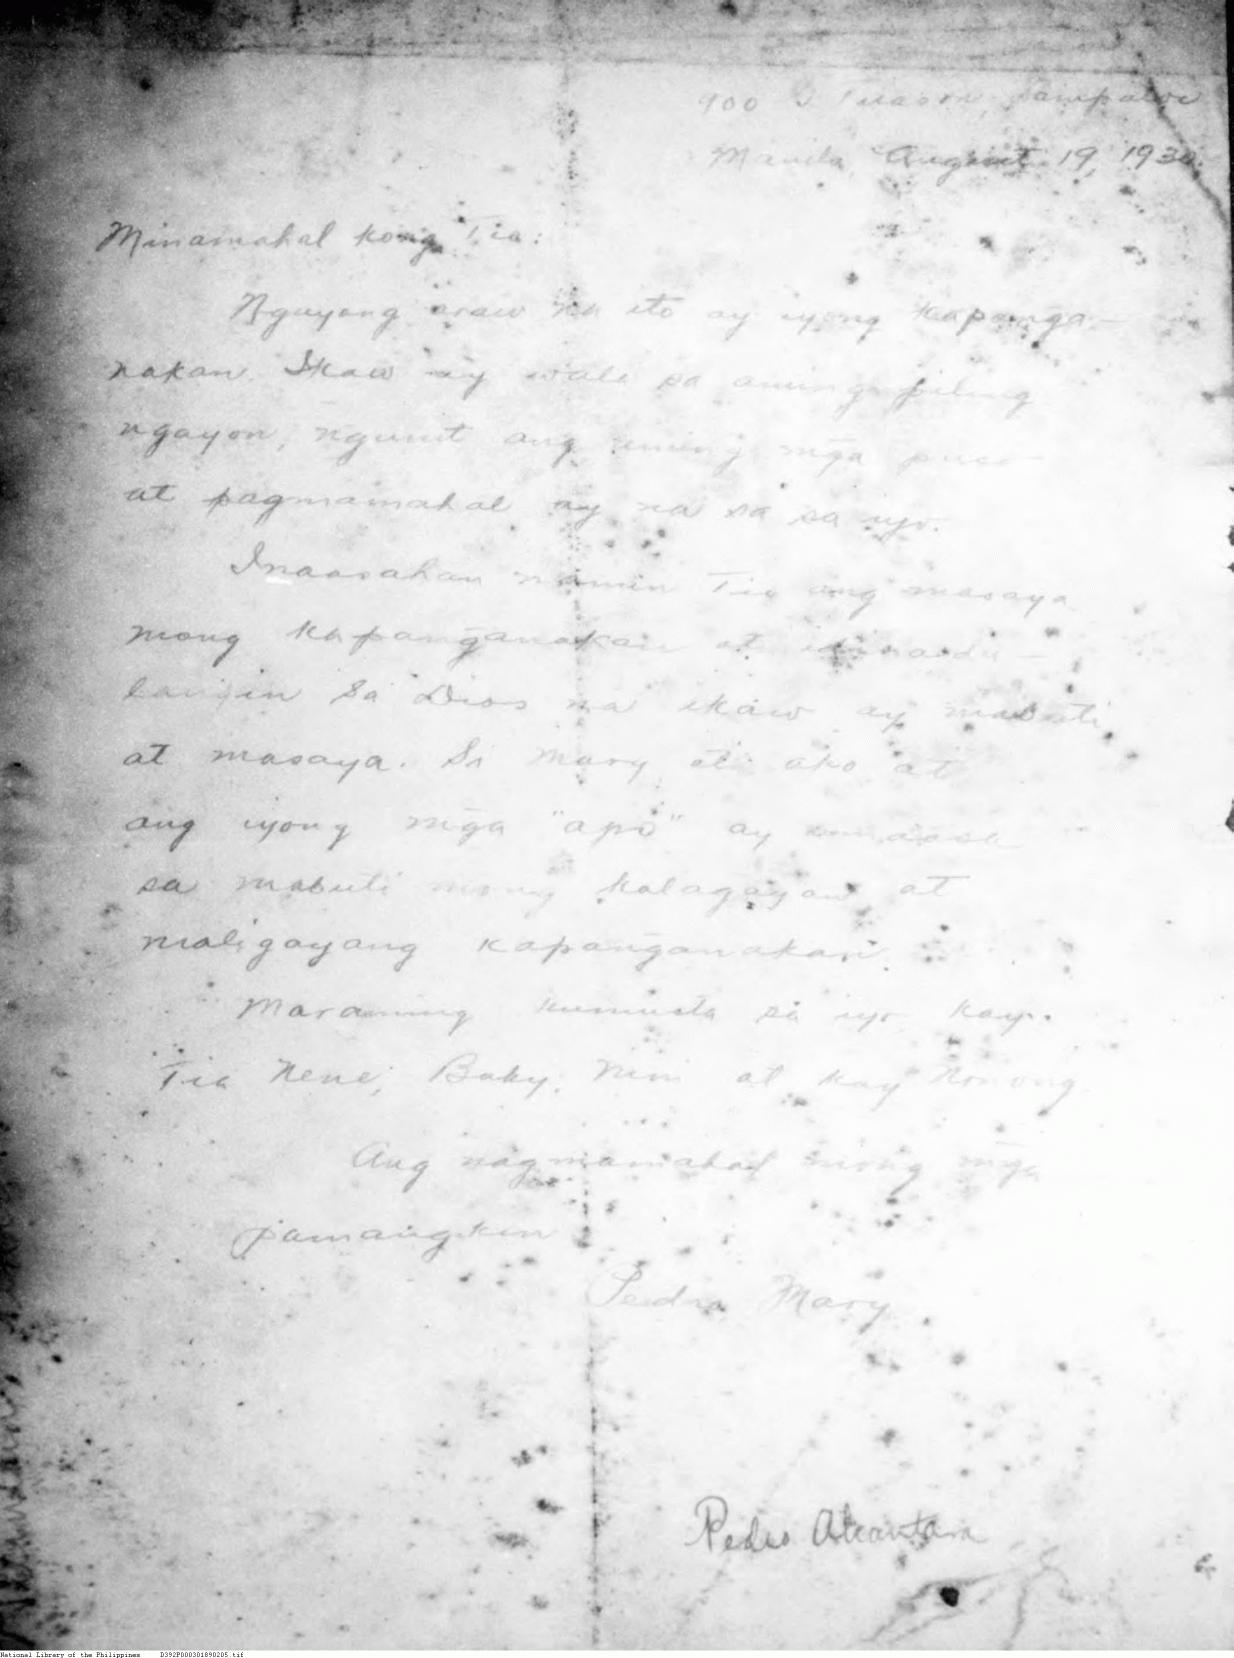 900 J Tuason, Sampaloc
Manila, August 19, 193
Minamahal kong Tia:
Nguyong araw na ito ay iyong kapanga-
nakan. Ikaw ay wala sa aming piling
ngayon, ngunit ang aming mga puso
at pagmamahal ay na sa sa iyo.
Inaasahan namin Tia ang masaya
mong kapanganakan at idinada-
langin sa Dios na ikaw ay mabuti
at masaya. Si Mary at ako at
ang iyong mga "apo" ay umaasa
sa mabuti mong kalagayan at
maligayang kapanganakan.
Maraming kumusta sa iyo kay
Tia Nene, Baby, Nini at kay Nonong
Ang nagmamahal mong mga
pamangkin
Pedro Mary
Pedro Alcantara
National Library of the Philippines D392P000301890205.tif